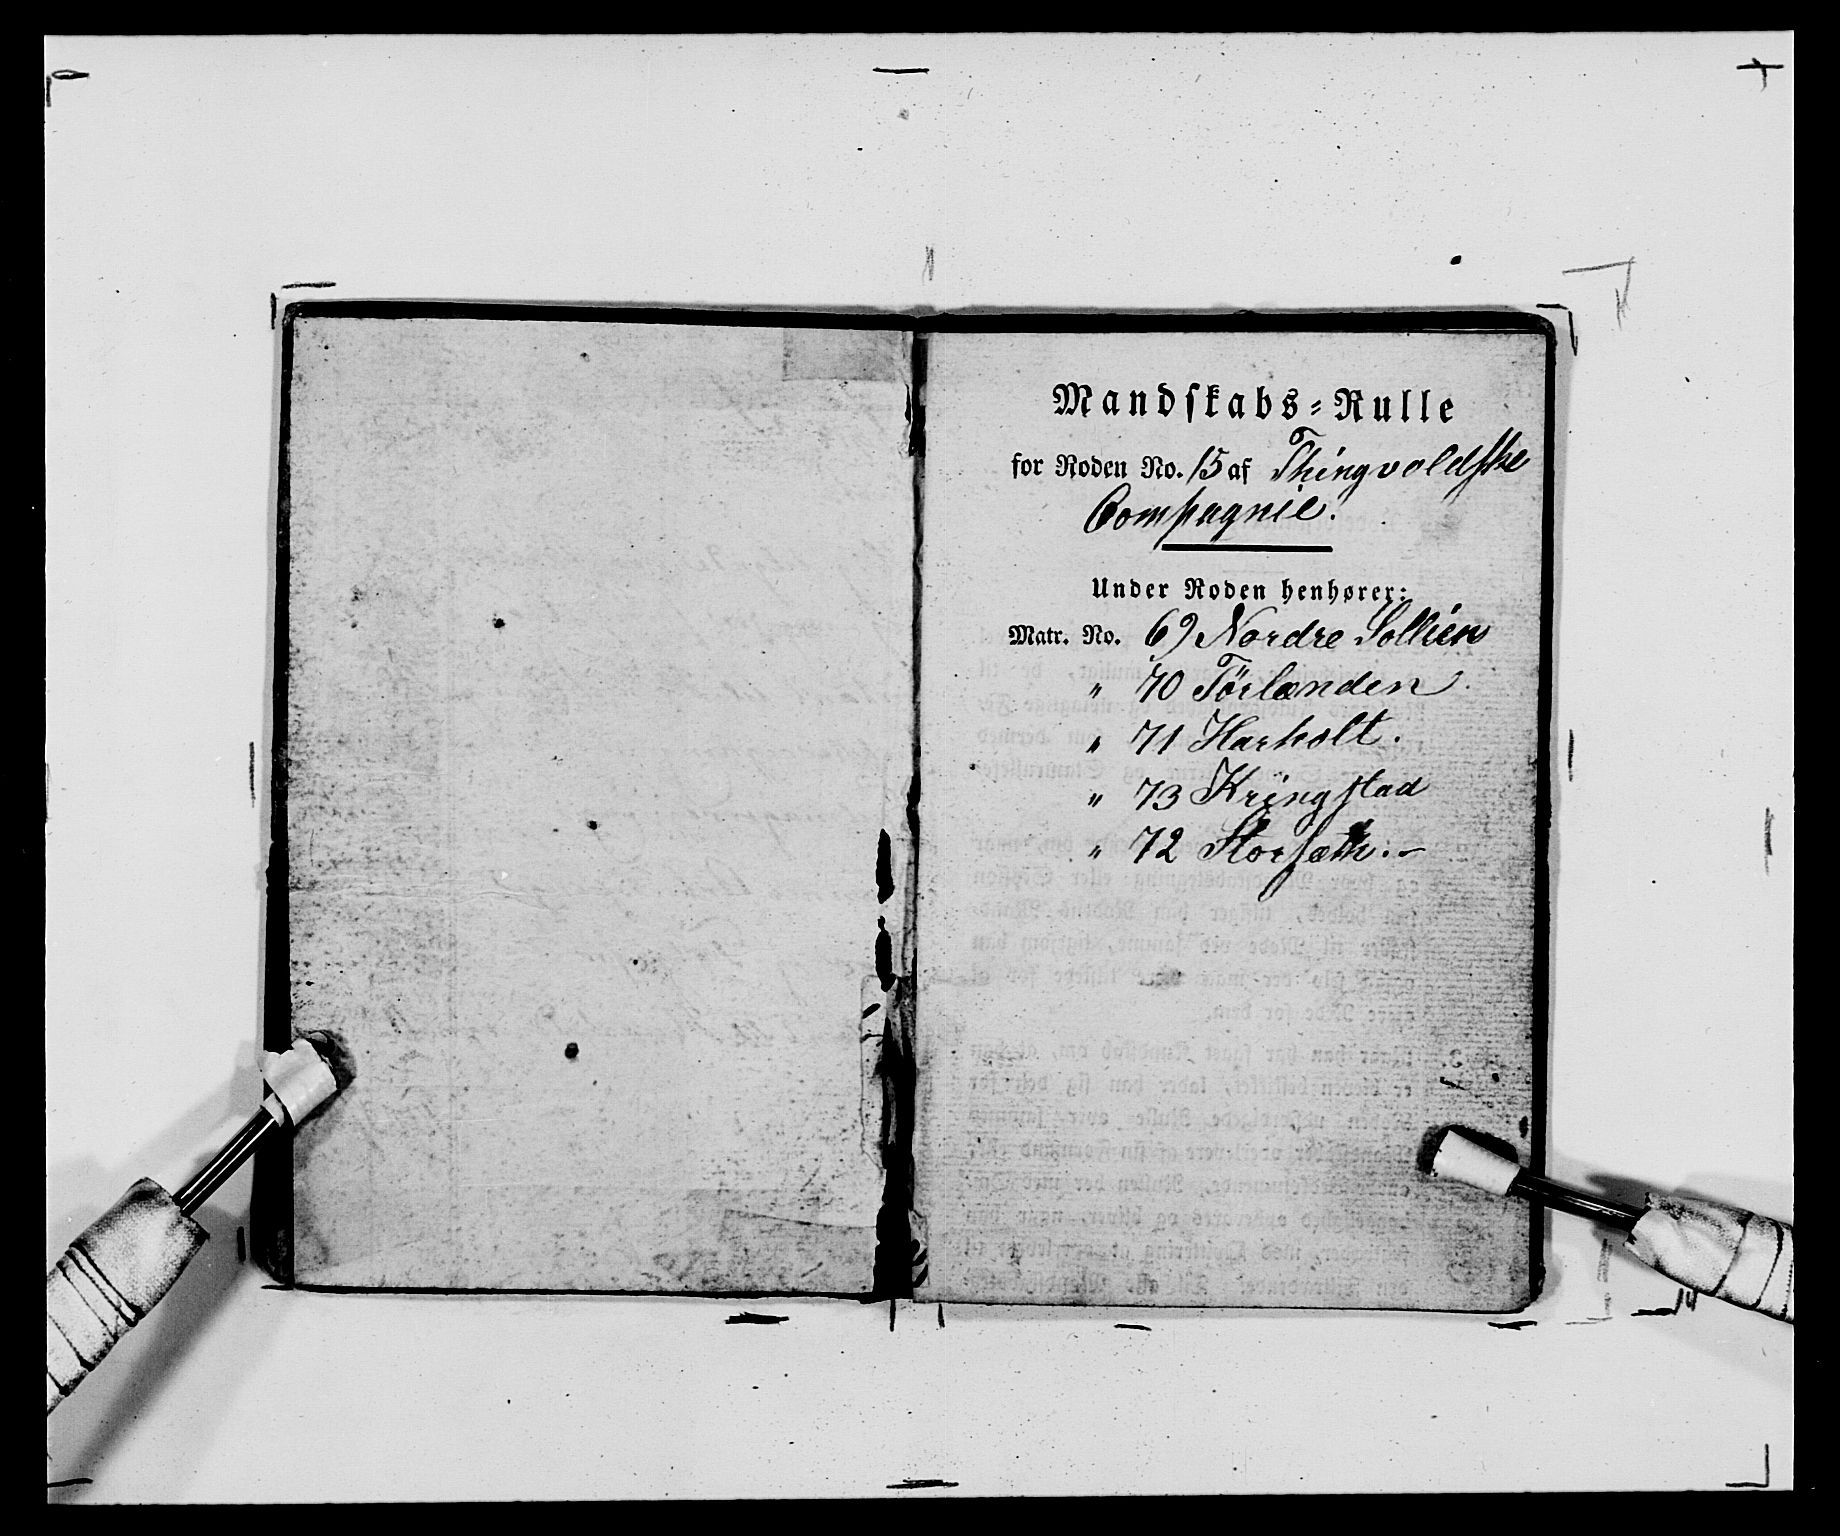 Mandskabs-Rulle
for Roden No. 15 af Thingvoldske
Compagnie.
Under Roden henhører:
Matr. No. 69 Nordre Sollien
" 70 Törlænden
" 71 Harholt.
" 73 Kringstad
" 72 Storsæth.-